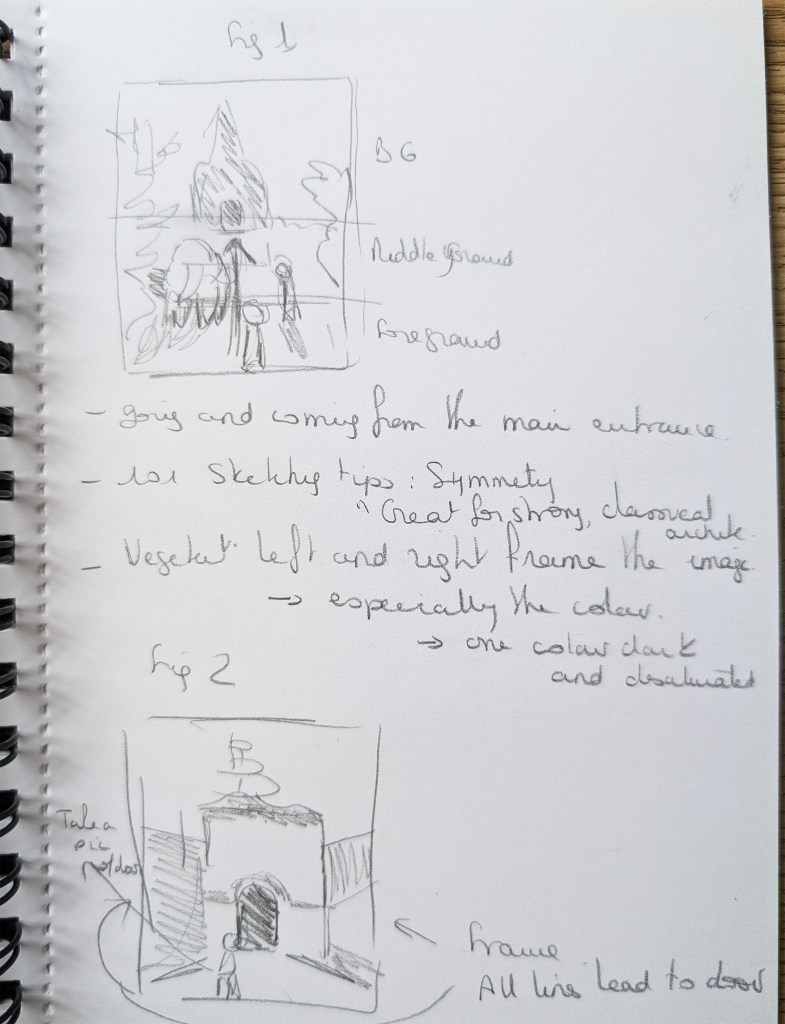 Fig 1
BG
Middle ground
Foreground
- going and coming from the main entrance.
- 101 Sketching tips : Symmetry
" Great for strong, classical
archite.
- Vegetat. left and right frame the image.
→ especially the colour.
→ one colour dark
and desaturated
Fig 2
Take a
pic
Frame
All lines lead to door